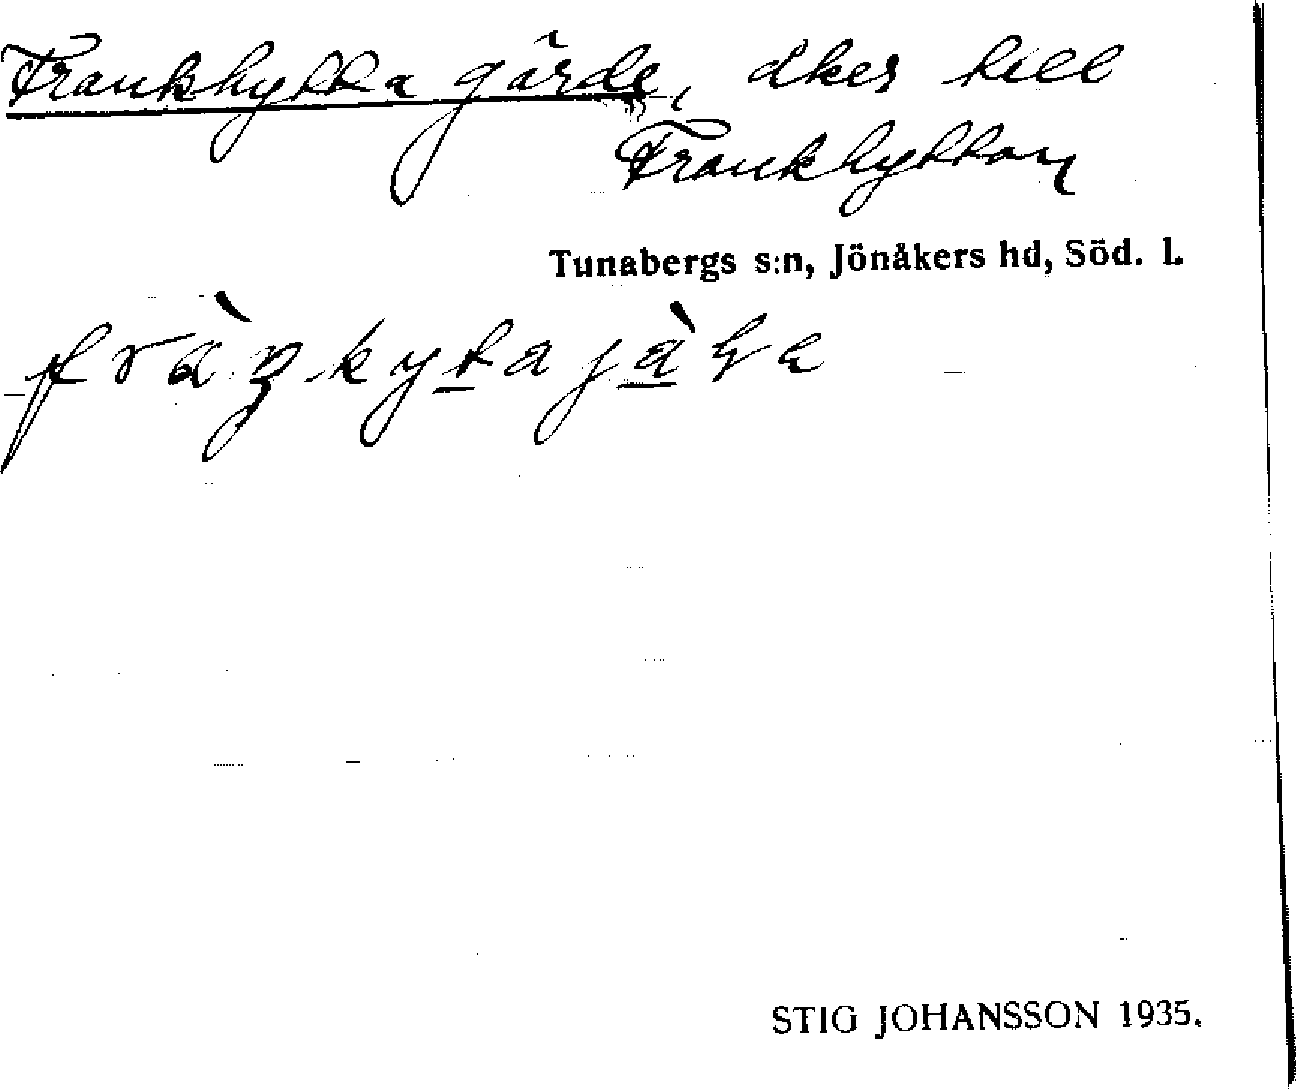 Frankhytta gärde, åker till
Frankhyttan
Tunabergs s:n, Jönåkers hd, Söd. l.
STIG JOHANSSON 1935.